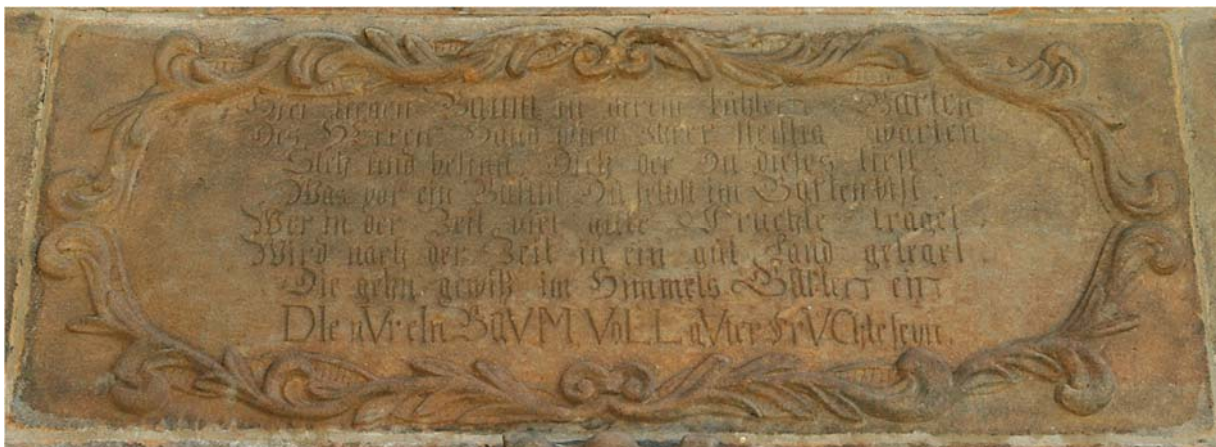 Hier liegen Bäum in ihrem kühlen Garten
Des Herren Hand wird ihrer fleisig warten
Sieh und besinn Dich der Du dieses liest
Was vor ein Baum Du selbst im Garten bist.
Wer in der Zeit viel gute Früchte traget
Wird nach der Zeit in ein gut Land geleget
Die gehn gewiß im Himmels Garten ein
DIe nVr eIn BaVM VoLL gVter FrVChte seyn.